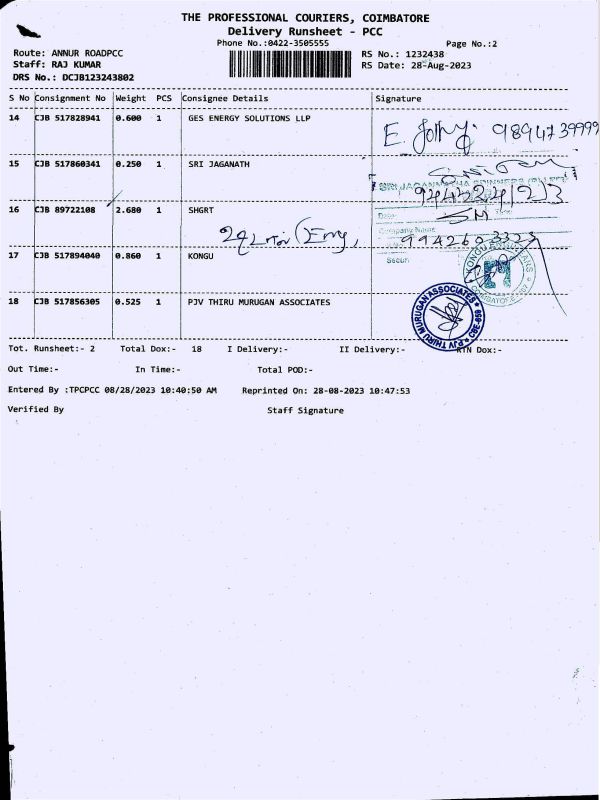 THE PROFESSIONAL COURIERS, COIMBATORE
Delivery Runsheet - PCC
Phone No.:0422-3505555
Page No.:2
Route: ANNUR ROADPCC
RS No.: 1232438
Staff: RAJ KUMAR
RS Date: 28-Aug-2023
DRS No.: DCJB123243802
S No Consignment No Weight PCS Consignee Details Signature
14 CJB 517828941 0.600 1 GES ENERGY SOLUTIONS LLP
9894739999
15 CJB 517860341 0.250 1 SRI JAGANATH
16 CJB 89722108 2.680 1 SHGRT
Company Name
17 CJB 517894040 0.860 1 KONGU
18 CJB 517856305 0.525 1 PJV THIRU MURUGAN ASSOCIATES
PJV THIRU MURUGAN ASSOCIATES
Tot. Runsheet:- 2 Total Dox:- 18 I Delivery:- II Delivery:- RTN Dox:-
Out Time:- In Time:- Total POD:-
Entered By :TPCPCC 08/28/2023 10:40:50 AM Reprinted On: 28-08-2023 10:47:53
Verified By Staff Signature